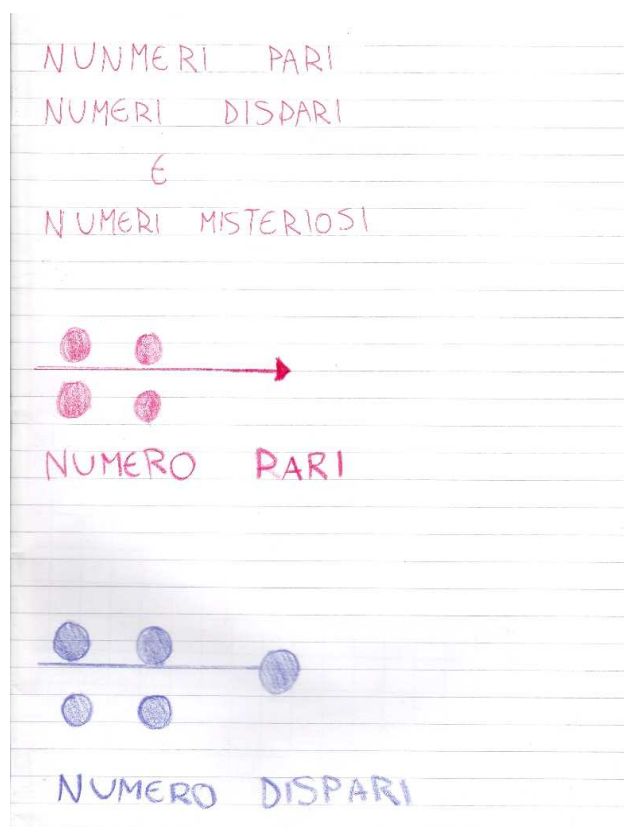 NUNMERI PARI
NUMERI DISPARI
E
NUMERI MISTERIOSI
NUMERO PARI
NUMERO DISPARI